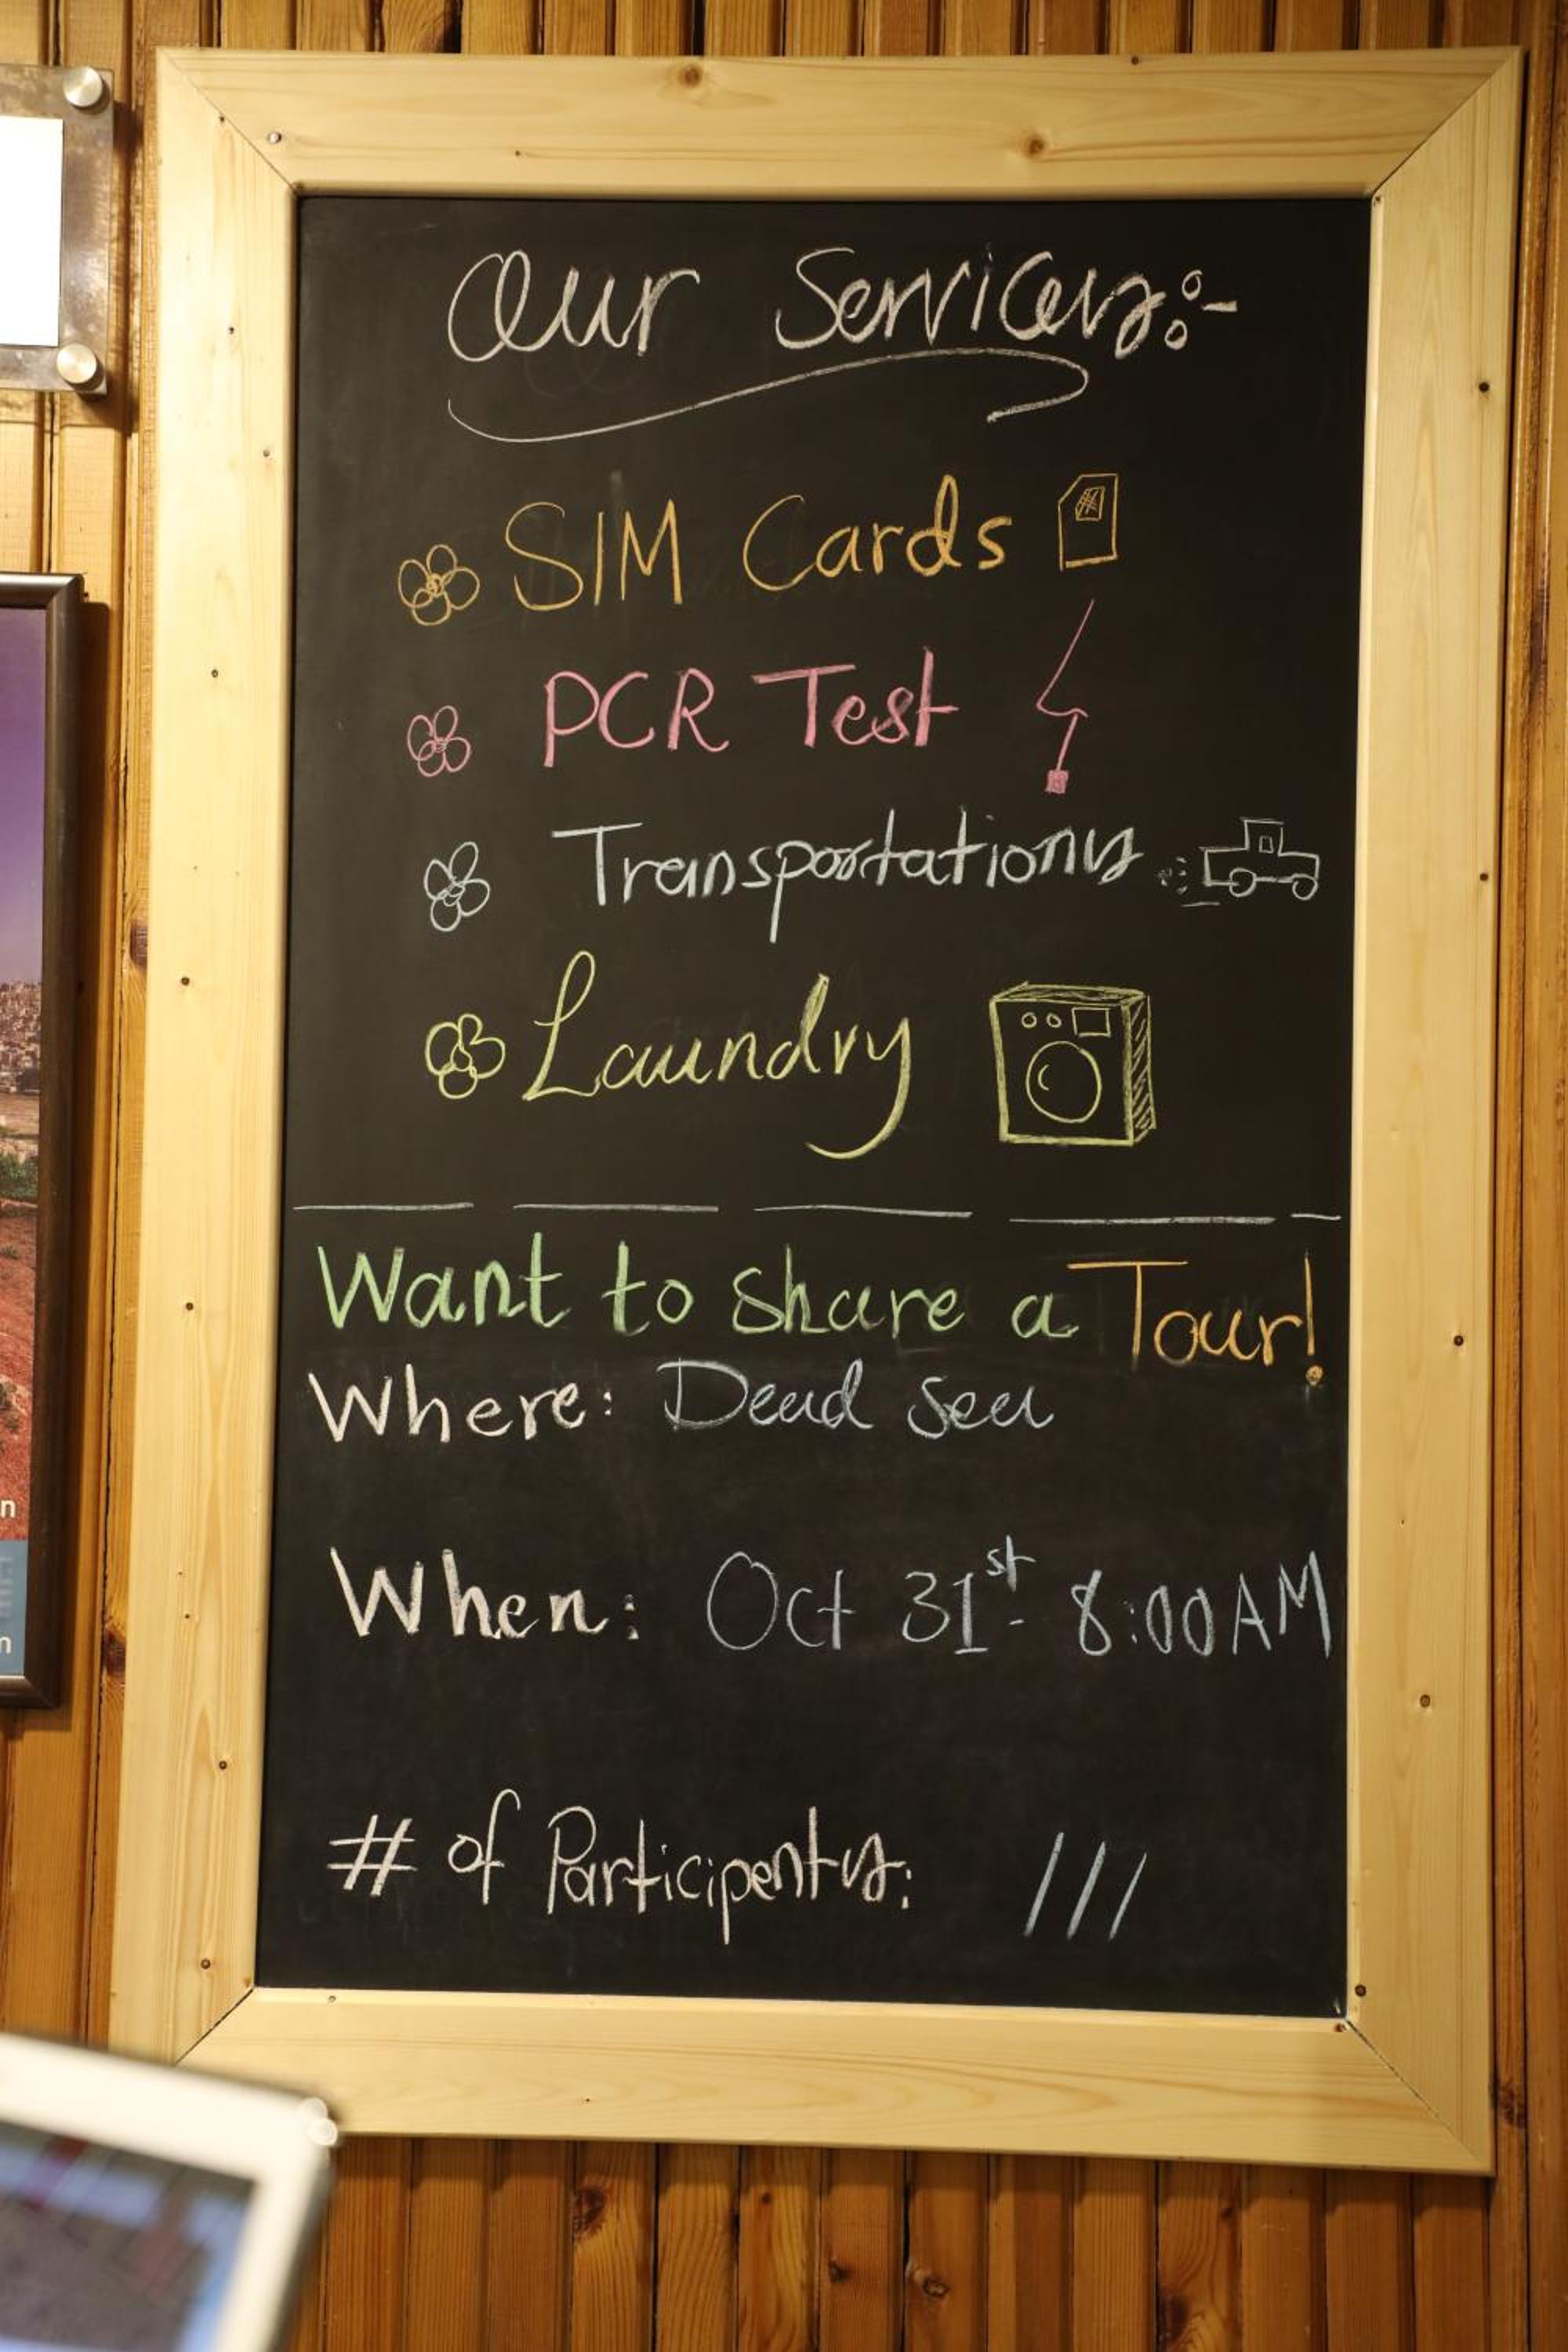 Our Services:-
SIM Cards
PCR Test
Transportations
Laundry
Want to share a Tour!
Where: Dead Sea
When: Oct 31st - 8:00AM
# of Participents: ///
n
n